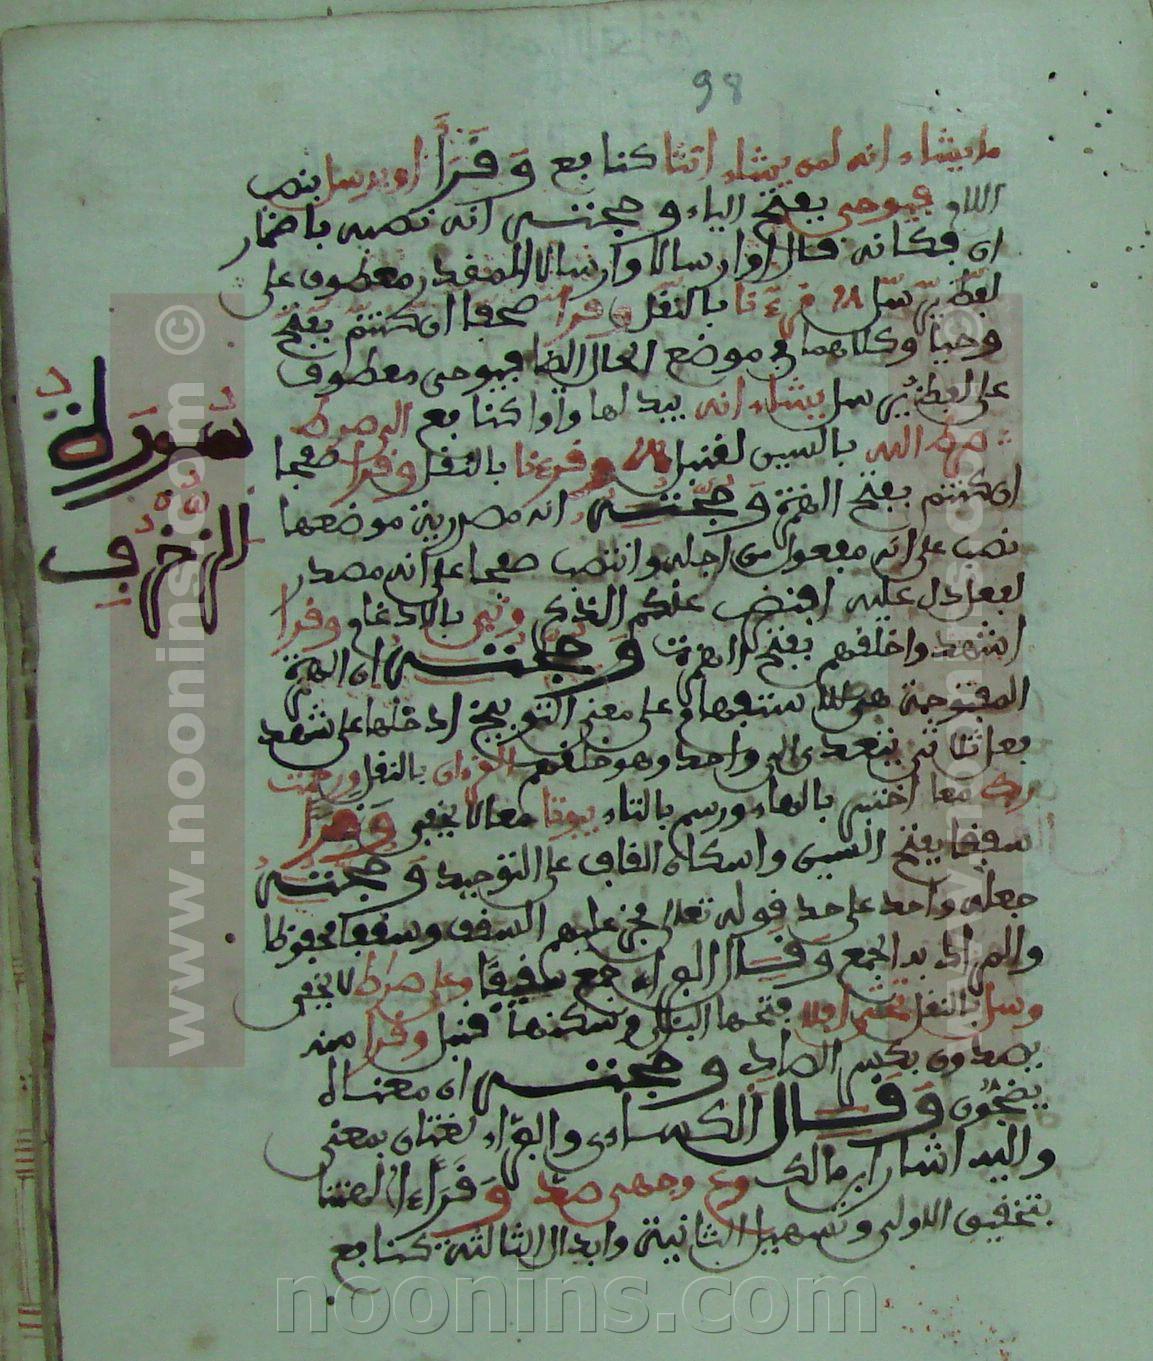 98
ما يشاء انه لمن يشاء اناثا كنابع وقرا او يرسل بنصب
اللام فيوحى بفتح الياء وحجته انه نصبه باضمار
ان فكانه قال او ارسالا وارسالا المقدر معطوف على
لفظ قرءنا بالنقل وقرا صفحا ان كنتم بفتح
وحيا وكلاهما في موضع الحال ايضا فيوحى معطوف
على لفظ يرسل يشاء انه يبدلها واوا كنابع الى صرط
صرط الله بالسين لقنبل وقرءنا بالنقل وقرا صفحا
ان كنتم بفتح الهمزة وحجته انه مصدرية موضعها
نصب على انه مفعول من اجله وانتصب صفحا على انه مصدر
لفعل دل عليه افنضرب عنكم الذكر بالادغام وقرا
اشهدوا خلقهم بفتح الهمزة وحجته ان الهمزة
المفتوحة همزة استفهام على معنى التوبيخ ادخلها على شهد
فعل ثلاثي يتعدى الى واحد وهو خلقهم القران بالنقل ورحمت
ربك معا اختبر بالهاء ورسم بالتاء بيوتا معا لا يخفى وقرا
سقفا بفتح السين واسكان القاف على التوحيد وحجته
جعله واحد على حد قوله تعالى فخر عليهم السقف وسقفا محفوظا
والمراد به الجمع وقال الفراء جمع سقيفا وعلى صرط لا يخفى
وسل بالنقل تحتي افلا فتحها البزي وسكنها قنبل وقرا منه
يصدون بكسر الصاد وحجته ان معناه
يضجون وقال الكسائي والفراء لغتان بمعنى
واليه اشار ابن مالك وقرا ءالهتنا
بتحقيق الاولى وتسهيل الثانية وابدال الثالثة كنابع
سورة
الزخرف
www.noonins.com ©
www.noonins.com ©
noonins.com